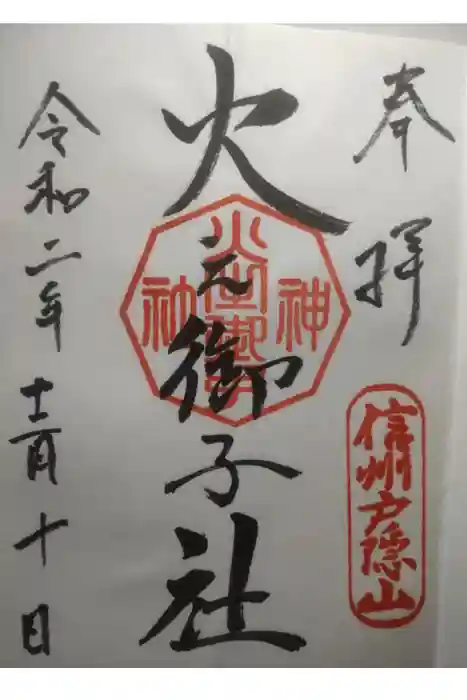 奉拝
信州戸隠山
火之御子社
令和二年十一月十日
神
社